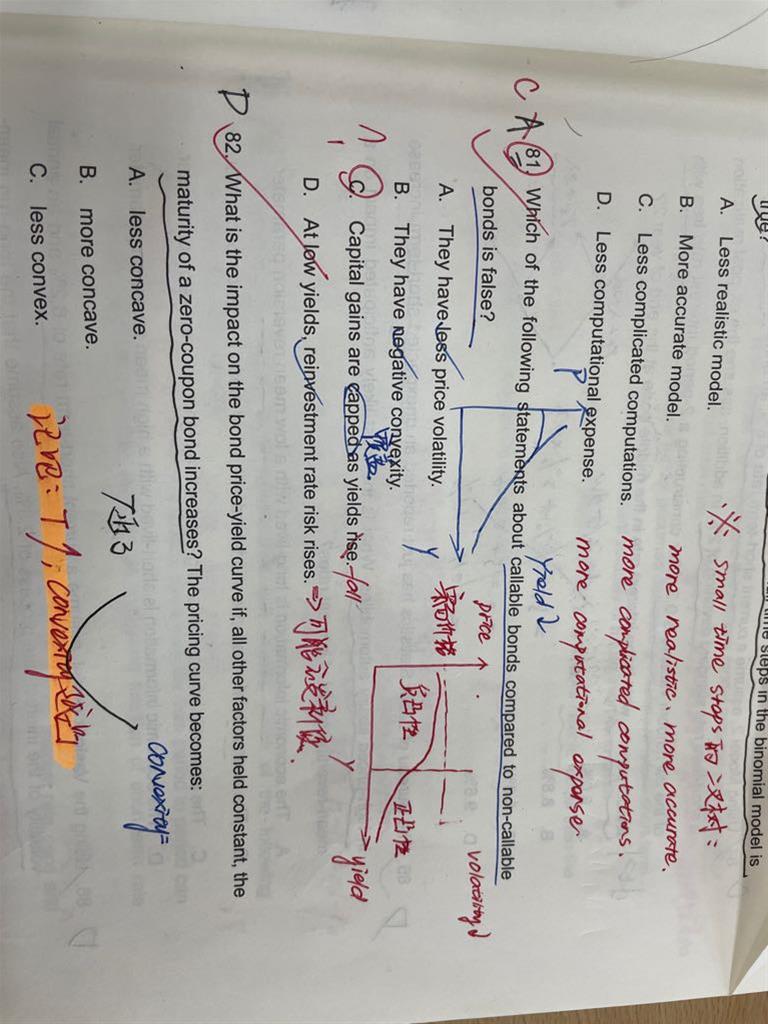 true?
time steps in the binomial model is
A. Less realistic model.
B. More accurate model.
C. Less complicated computations.
D. Less computational expense.
※ small time steps
more realistic. more accurate.
more complicated computations.
more computational expense
C A 81. Which of the following statements about callable bonds compared to non-callable
bonds is false?
A. They have less price volatility.
B. They have negative convexity.
C. Capital gains are capped as yields rise. fall
D. At low yields, reinvestment rate risk rises. ⇒ 可能
P
y
yield↓
price ↑
volatility↓
负凸性
正凸性
y
yield
D 82. What is the impact on the bond price-yield curve if, all other factors held constant, the
maturity of a zero-coupon bond increases? The pricing curve becomes:
A. less concave.
B. more concave.
C. less convex.
convexity=
记记: T↑, convexity